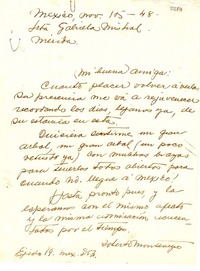 Mexico nov. 15 - 48.
Srta Gabriela Mistral
Merida.
Mi buena amiga:
Cuanto placer volver a verla
Su presencia me va a rejuvenecer
recordando los dias, lejanos ya, de
su estancia en esta.
Quisiera sentirme un gran
arbol, un gran arbol (un poco
todo) con muchos brazos
para tenerlos todos abiertos para
cuando Ud. llegue a Mexico!
Hasta pronto pues y la
esperamos con el mismo afecto
y la misma admiracion
todos por el tiempo.
Roberto Montenegro